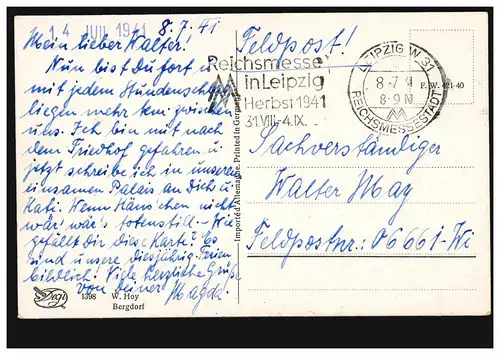 14. JUL 1941
8.7.41
Mein lieber Walter!
Nun bist Du fort u.
mit jedem Stundenschlag
liegen mehr km zwischen
uns. Ich bin mit nach
dem Friedhof gefahren u.
jetzt schreibe ich in unserem
einsamen Palais an Dich u.
Kati. Wenn Hänschen nicht
wär' wär's totenstill. - Wie
gefällt Dir diese Karte? Es
sind unsere diesjährig. Ferien
bildlich! Viele herzliche Grüße
von Deiner Magda.
1398 W. Hoy
Bergdorf
Importé d'Allemagne. Printed in Germany
Feldpost!
Reichsmesse
in Leipzig
Herbst 1941
31.VIII.-4.IX.
LEIPZIG W 31
8-7 41
8-9 N
REICHSMESSESTADT
P. W. 421-40
Sachverständiger
Walter May
Feldpostnr: 06661-Wi